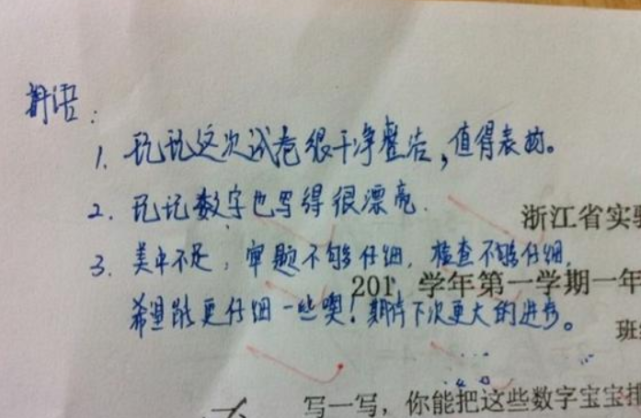 寄语：
1. 玑玑这次试卷很干净整洁，值得表扬。
2. 玑玑数字也写得很漂亮.
3. 美中不足，审题不够仔细，检查不够仔细，
浙江省实验
201 学年第一学期一年
希望能更仔细一些噢！期待下次更大的进步。
班级
写一写，你能把这些数字宝宝排